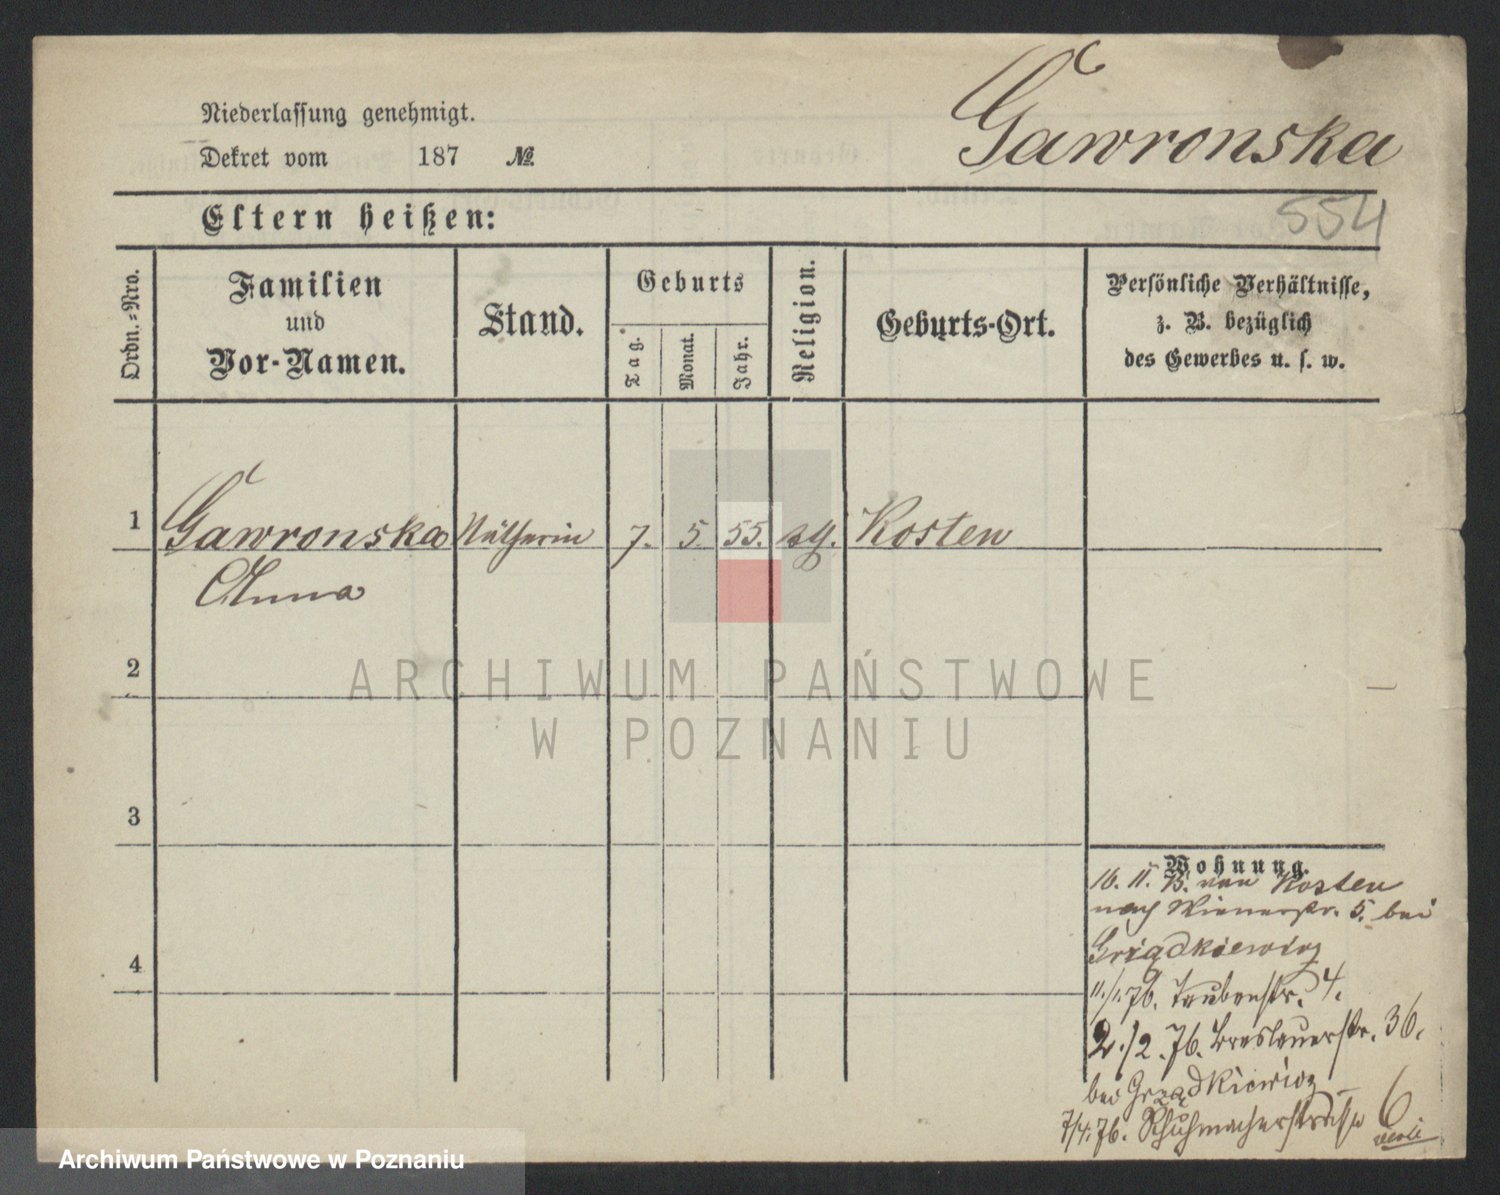 Gawronska
Niederlassung genehmigt.
Dekret vom 187 №
554
Eltern heißen:
Ordn.-Nro.
Familien
und
Vor-Namen.
Stand.
Geburts
Tag.
Monat.
Jahr.
Religion.
Geburts-Ort.
Persönliche Verhältnisse,
z. B. bezüglich
des Gewerbes u. s. w.
1 Gawronska Nätherin 7. 5. 55. Kosten
Anna
2
3
4
Wohnung.
16. 11. 75. von Kosten
nach Wienerstr. 5. bei
Grządkiewicz
11./1. 76. Taubenstr. 4.
2./2. 76. Breslauerstr. 36.
bei Grządkiewicz
7/4. 76. Schuhmacherstraße 6
ARCHIWUM PAŃSTWOWE
W POZNANIU
Archiwum Państwowe w Poznaniu